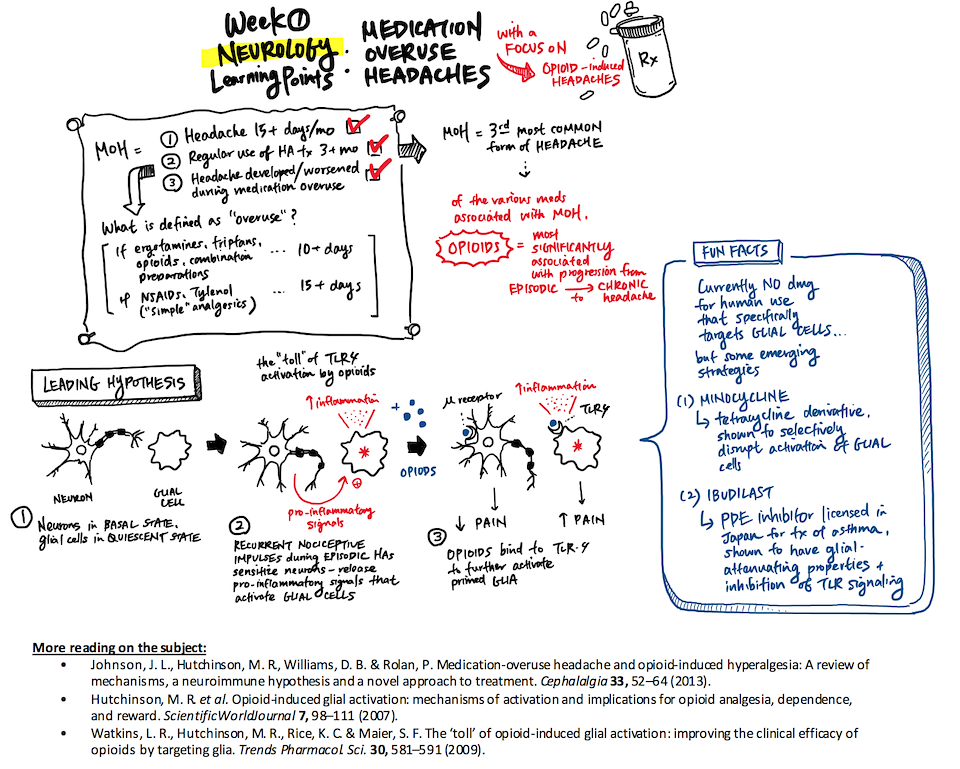 Week ①
NEUROLOGY
Learning Points
: MEDICATION
OVERUSE
HEADACHES
with a
FOCUS ON
OPIOID-induced
HEADACHES
Rx
MOH =
① Headache 15+ days/mo
② Regular use of HA tx 3+ mo
③ Headache developed/worsened
during medication overuse
What is defined as "overuse"?
If ergotamines, triptans,
opioids, combination
preparations
... 10+ days
if NSAIDs, Tylenol
("simple" analgesics)
... 15+ days
MOH = 3rd most COMMON
form of HEADACHE
of the various meds
associated with MOH,
OPIOIDS = most
SIGNIFICANTLY
associated
with progression from
EPISODIC → CHRONIC
to headache
LEADING HYPOTHESIS
NEURON
GLIAL
CELL
① Neurons in BASAL STATE,
glial cells in QUIESCENT STATE
the "toll" of TLR4
activation by opioids
↑ inflammation
⊕
pro-inflammatory
signals
②
RECURRENT NOCICEPTIVE
IMPULSES during EPISODIC HAS
sensitize neurons - release
pro-inflammatory signals that
activate GLIAL CELLS
+
OPIODS
μ receptor
↑ inflammation
TLR4
↓ PAIN
↑ PAIN
③
OPIOIDS bind to TLR-4
to further activate
primed GLIA
FUN FACTS
Currently NO drug
for human use
that specifically
targets GLIAL CELLS...
but some emerging
strategies
(1) MINOCYCLINE
↳ tetracycline derivative,
shown to selectively
disrupt activation of GLIAL
cells
(2) IBUDILAST
↳ PDE inhibitor licensed in
Japan for tx of asthma,
shown to have glial-
attenuating properties +
inhibition of TLR signaling
More reading on the subject:
• Johnson, J. L., Hutchinson, M. R., Williams, D. B. & Rolan, P. Medication-overuse headache and opioid-induced hyperalgesia: A review of
mechanisms, a neuroimmune hypothesis and a novel approach to treatment. Cephalalgia 33, 52–64 (2013).
• Hutchinson, M. R. et al. Opioid-induced glial activation: mechanisms of activation and implications for opioid analgesia, dependence,
and reward. ScientificWorldJournal 7, 98–111 (2007).
• Watkins, L. R., Hutchinson, M. R., Rice, K. C. & Maier, S. F. The 'toll' of opioid-induced glial activation: improving the clinical efficacy of
opioids by targeting glia. Trends Pharmacol. Sci. 30, 581–591 (2009).